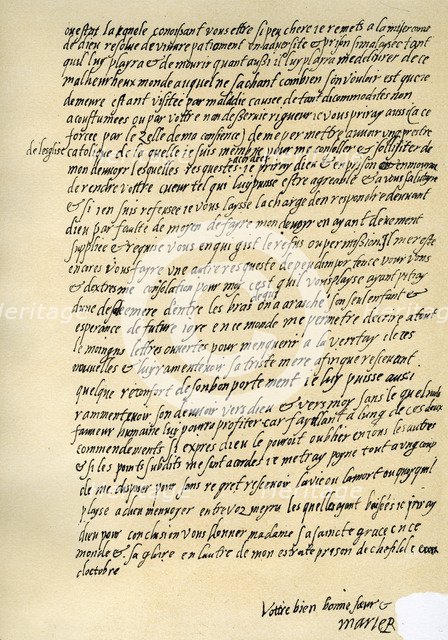 de dieu resolue de vivre patiemment en adversite & prison si malaysee tant
quil luy playra & de mourir quant aussi il luy playra me delivrer de ce
malheureux monde auquel ne sachant combien son vouloir est que ie
demeure estant visitee par maladie causee de tant dicommodites non
acoustumees ou par vottre non deservie rigueur ie vous priray aussi (a ce
forcee par le zelle de ma consience) de me permettre avoir un prestre
de leglise
catolique de la quelle ie suis membre pour me consoller & solisiter de
mon devoyr lesquelles requestes
de rendre vottre cueur tel qui luy puisse estre agreable & a vous salutayre
& si ien suis refusee ie vous laysse la charge den respondre devant
dieu par faulte de moyen de fayre mon devoyr en ayant deuement
supplice & requise vous en qui gist le refus ou permission Il me reste
encores vous fayre une autre requeste de peu dimportence pour vous
& dextresme consolation pour moy cest quil vous playse ayant pitay
dune desolee mere dentre les bras de qui on a arasche son seul enfant &
esperance de future ioye en ce monde me permetre decrire a tout
le moingns lettres ouvertes pour menquerir a la veritay de ces
nouvelles & luy ramentevoir sa triste mere afin que resevant
quelque reconfort de son bon portement ie luy puisse aussi
ramentevoir son devoir vers dieu & vers moy sans le quel nulle
faveur humaine luy pourra profiter car fayllant a lung de ces deux
commendements si expres dieu le pouroit oublier en tous les autres
& si les points subdits me sont acordes ie metray poyne tout aung coup
de me disposer pour sans regret resevoir la vie ou la mort ou quoy quil
playse a dieu menvoyer entre voz meyns les quelles ayant
dieu pour conclusion vous donner madame sa saincte grace en ce
monde & sa gloire en lautre de mon estroite prison de chefild ce
doctobre
Vottre bien bonne soeur &
MARIE R
heritage